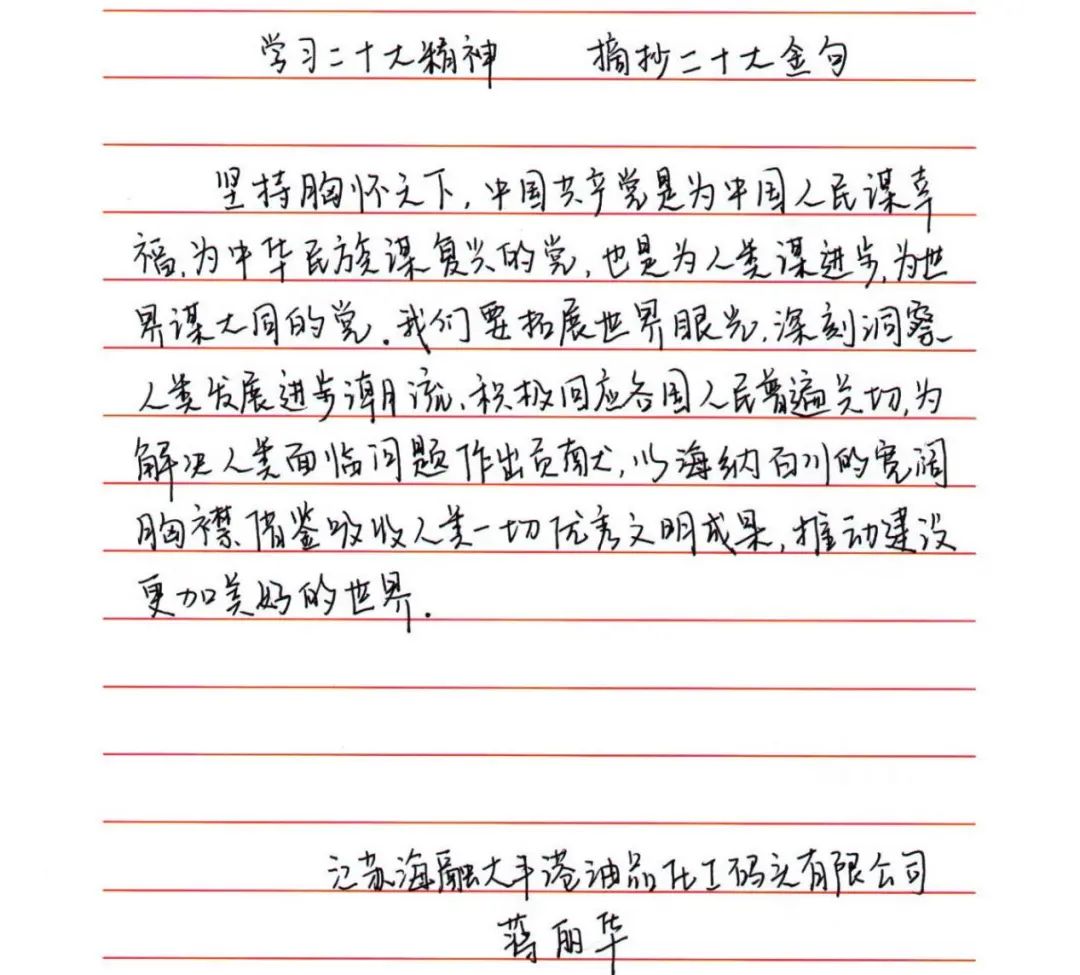 学习二十大精神 摘抄二十大金句
坚持胸怀天下，中国共产党是为中国人民谋幸
福、为中华民族谋复兴的党，也是为人类谋进步、为世
界谋大同的党。我们要拓展世界眼光，深刻洞察
人类发展进步潮流，积极回应各国人民普遍关切，为
解决人类面临问题作出贡献，以海纳百川的宽阔
胸襟借鉴吸收人类一切优秀文明成果，推动建设
更加美好的世界。
江苏海融大丰港油品化工码头有限公司
蒋丽华